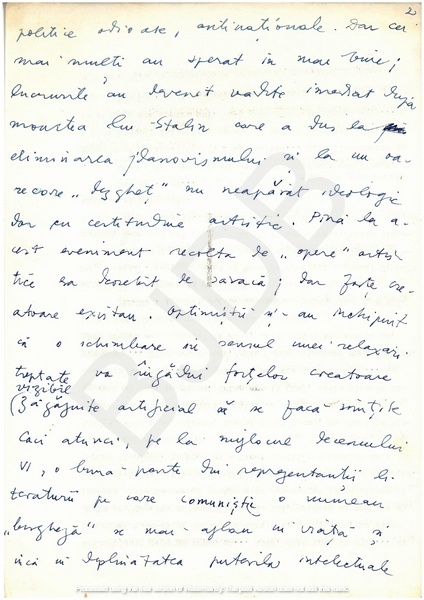 2
politice odioase, antinaționale. Dar cei
mai mulți au sperat în mai bine;
lucrurile au devenit vădite imediat după
moartea lui Stalin care a dus la
eliminarea jdanovismului și la un oa-
recare „dezgheț” nu neapărat ideologic
dar cu certitudine artistic. Pînă la a-
cest eveniment recolta de „opere” artis-
tice era deosebit de săracă; dar forțe cre-
atoare existau. Optimiștii și-au închipuit
că o schimbare în sensul unei relaxări
treptate va îngădui forțelor creatoare
vizibil
(zăgăzuite artificial să se facă simțite
Căci atunci, pe la mijlocul deceniului
VI, o bună parte din reprezentanții li-
teraturii pe care comuniștii o numeau
„burgheză” se mai aflau în viață și
încă în deplinătatea puterilor intelectuale
BJDB